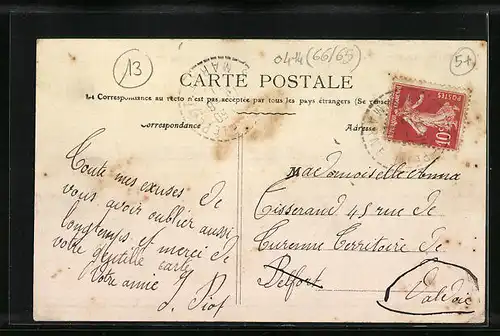 13
0414 (66/65)
5+
CARTE POSTALE
La Correspondance au recto n'est pas acceptée par tous les pays étrangers (Se rensei
Correspondance
Adresse
POSTES
10c
MAR
Toute mes excuses de
vous avoir oublier aussi
longtemps, et merci de
votre gentille carte
Votre amie
J. Piot
Mademoiselle Anna
Tisserand 45 rue de
Turenne Territoire de
Belfort
Valdoie